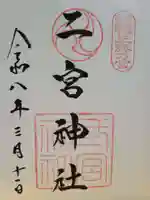 二宮神社
令和八年三月十一日